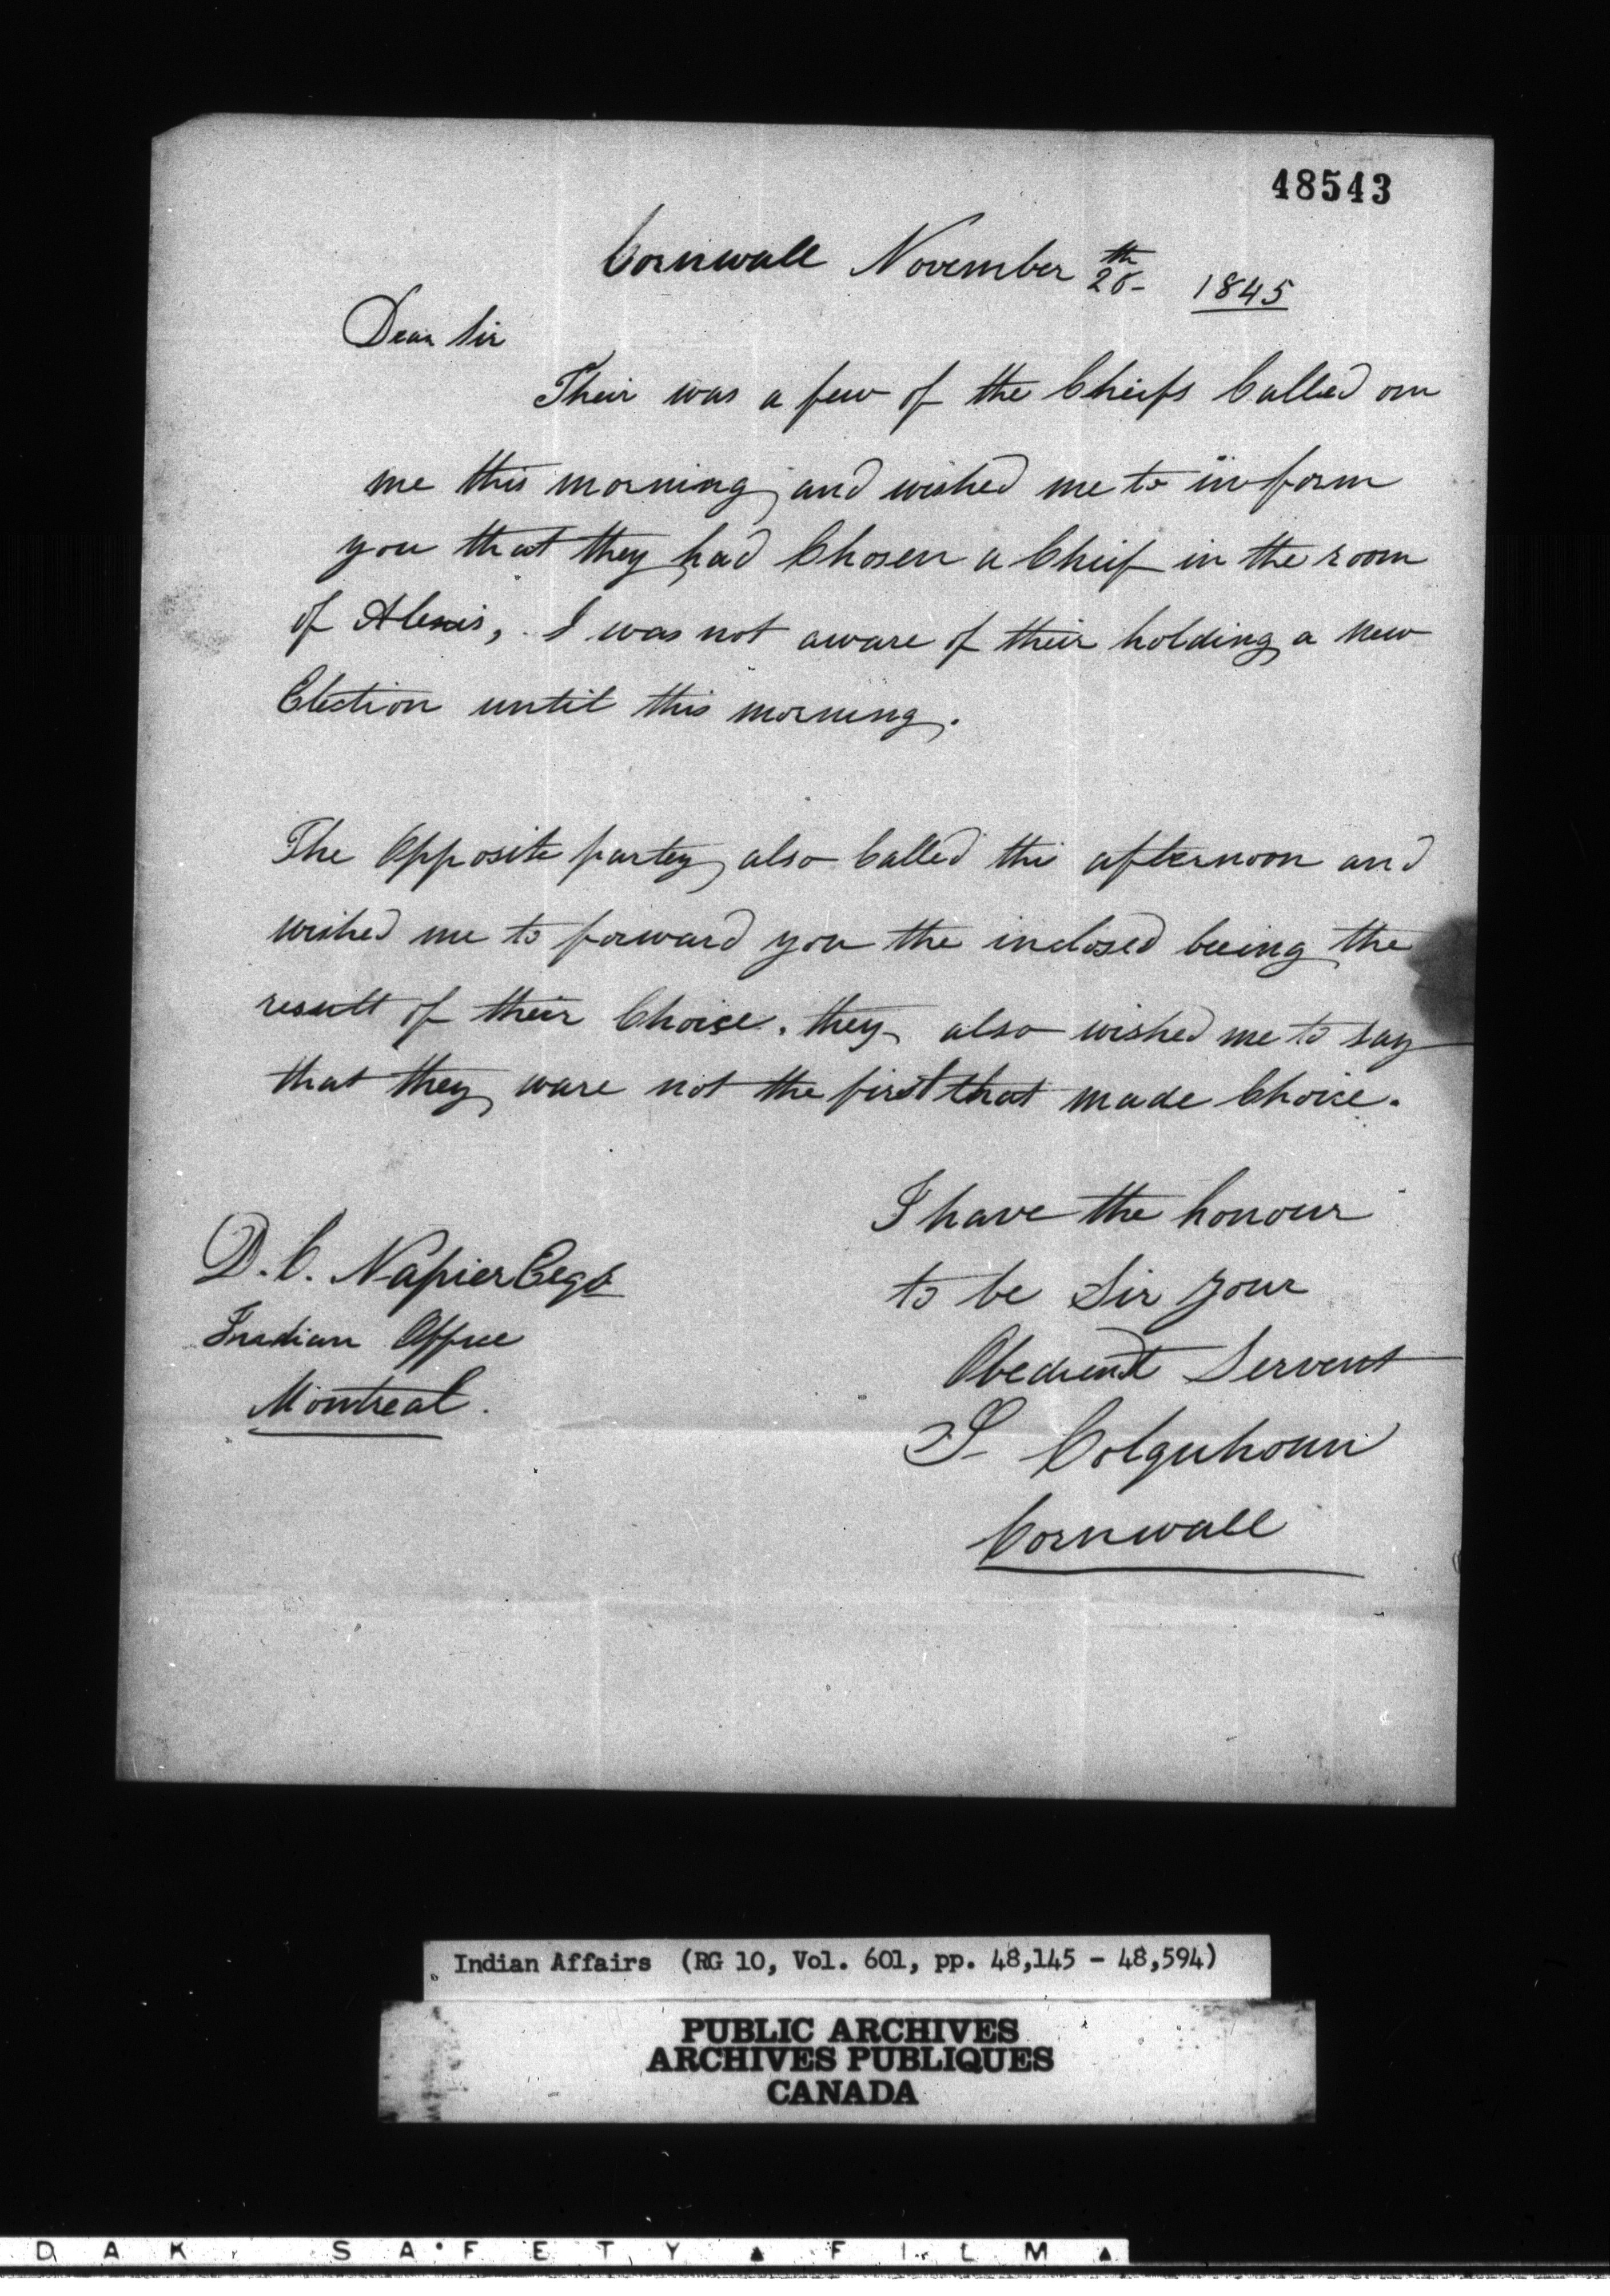 48543
Cornwall November 28th 1845
Dear Sir
Their was a few of the Cheifs Called on
me this morning and wished me to inform
you that they had Chosen a Cheif in the room
of Alexis, I was not aware of their holding a new
Election until this morning.
The Opposite party also Called this afternoon and
wished me to forward you the inclosed beeing the
result of their Choise. they also wished me to say
that they ware not the first that made Choice.
I have the honour
to be Sir your
Obedient Servent
S Colquhoun
Cornwall
D. C. Napier Esqr
Indian Office
Montreal.
Indian Affairs (RG 10, Vol. 601, pp. 48,145 - 48,594)
PUBLIC ARCHIVES
ARCHIVES PUBLIQUES
CANADA
DAK SAFETY ▲ FILM ▲